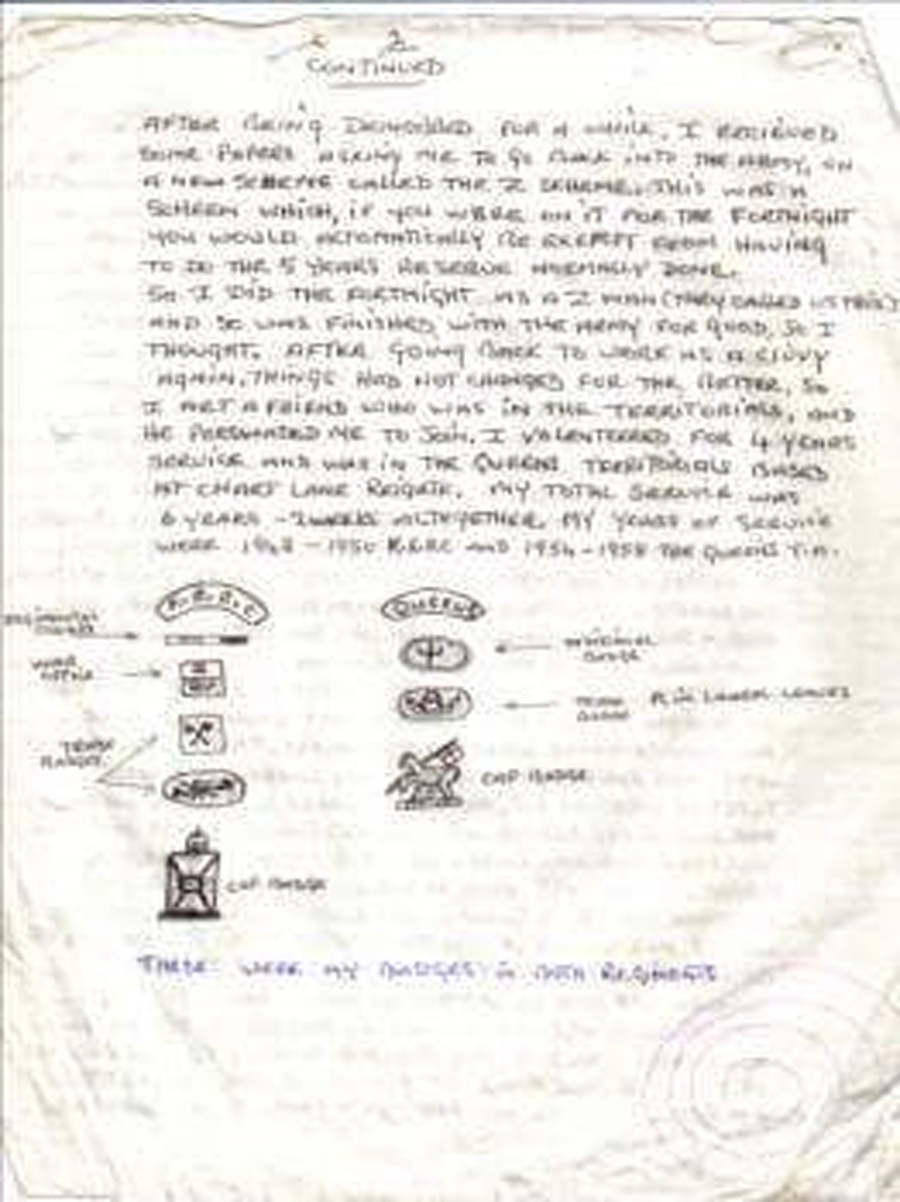 2
CONTINUED
AFTER BEING DEMOBBED FOR A WHILE, I RECIEVED
SOME PAPERS ASKING ME TO GO BACK INTO THE ARMY, ON
A NEW SCHEME CALLED THE Z SCHEME. THIS WAS A
SCHEEM WHICH, IF YOU WERE ON IT FOR THE FORTNIGHT
YOU WOULD AUTOMATICALLY BE EXEMPT FROM HAVING
TO DO THE 5 YEARS RESERVE NORMALLY DONE.
SO I DID THE FORTNIGHT AS A Z MAN (THEY CALLED US THIS)
AND SO WAS FINISHED WITH THE ARMY FOR GOOD, SO I
THOUGHT. AFTER GOING BACK TO WORK AS A CIVVY
AGAIN, THINGS HAD NOT CHANGED FOR THE BETTER, SO
I MET A FRIEND WHO WAS IN THE TERRITORIALS, AND
HE PERSUADED ME TO JOIN. I VOLENTEERED FOR 4 YEARS
SERVICE AND WAS IN THE QUEENS TERRITORIALS BASED
AT CHART LANE REIGATE. MY TOTAL SERVICE WAS
6 YEARS - 2 WEEKS ALTOGETHER. MY YEARS OF SERVICE
WERE 1948 - 1950 AND 1954 - 1958 THE QUEENS T.A.
QUEENS
REGIMENTAL
WAR
OFFICE
TRADE
BADGES
CAP BADGE
BADGE
TRADE
BADGE
IN LAUREL LEAVES
CAP BADGE
THESE WERE MY BADGES IN BOTH REGIMENTS